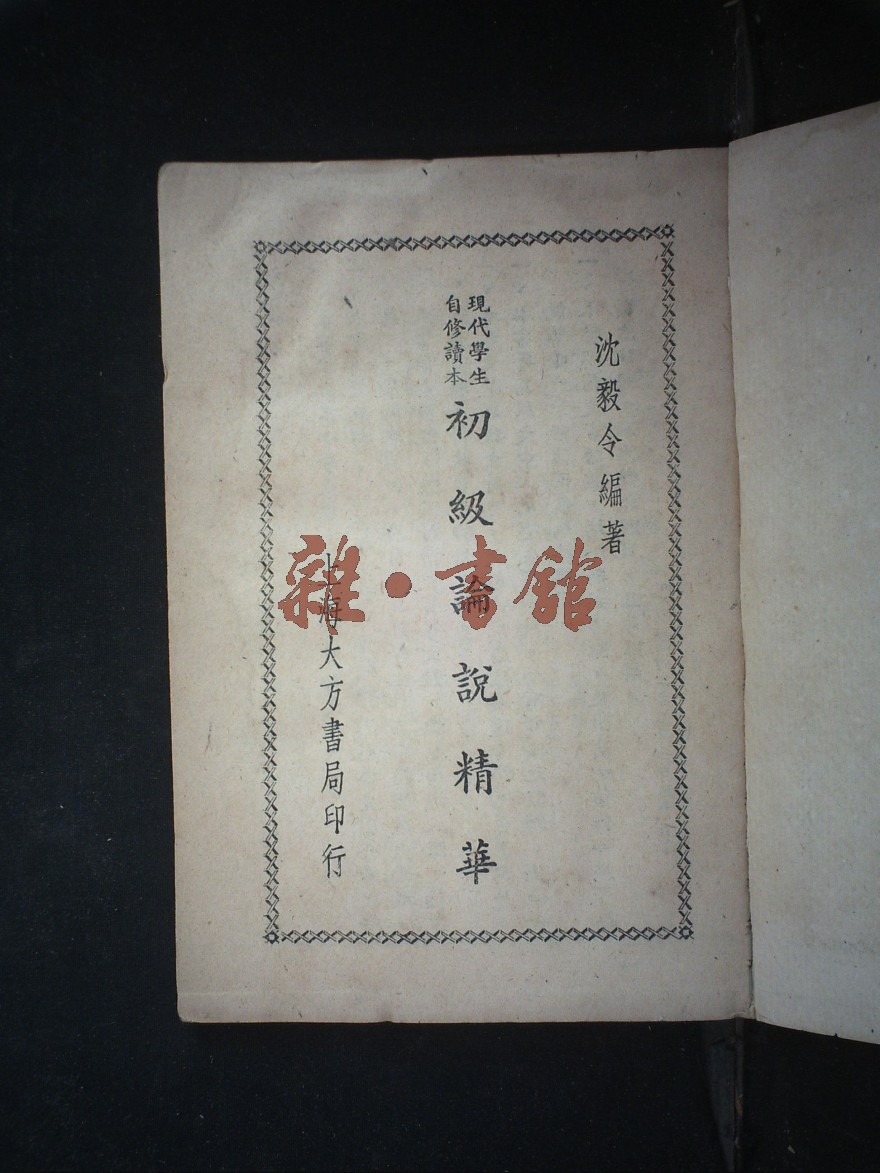 沈毅令編著
現代學生
自修讀本
初級論說精華
上海大方書局印行
雜·書館